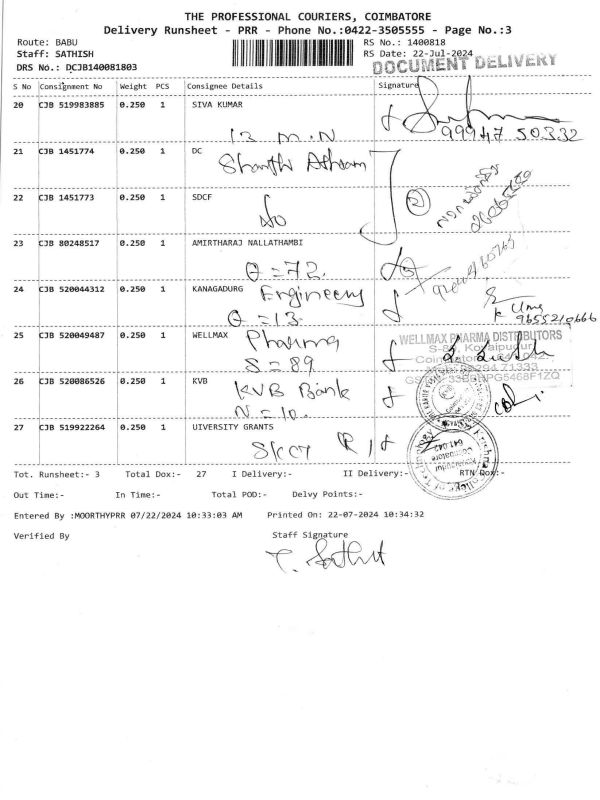 THE PROFESSIONAL COURIERS, COIMBATORE
Delivery Runsheet - PRR - Phone No.:0422-3505555 - Page No.:3
Route: BABU RS No.: 1400818
Staff: SATHISH RS Date: 22-Jul-2024
DRS No.: DCJB140081803 DOCUMENT DELIVERY
S No Consignment No Weight PCS Consignee Details Signature
20 CJB 519983885 0.250 1 SIVA KUMAR
13 M.N 99947 50332
21 CJB 1451774 0.250 1 DC
Shanthi
22 CJB 1451773 0.250 1 SDCF
23 CJB 80248517 0.250 1 AMIRTHARAJ NALLATHAMBI
= 72.
24 CJB 520044312 0.250 1 KANAGADURG Engineery
= 13. K Uma
9655210666
25 CJB 520049487 0.250 1 WELLMAX Pharma WELLMAX PHARMA DISTRIBUTORS
S = 89
26 CJB 520086526 0.250 1 KVB
KVB Bank
N = 10.
27 CJB 519922264 0.250 1 UIVERSITY GRANTS
SKCT
641 042
Tot. Runsheet:- 3 Total Dox:- 27 I Delivery:- II Delivery:- RTN Dox:-
Out Time:- In Time:- Total POD:- Delvy Points:-
Entered By :MOORTHYPRR 07/22/2024 10:33:03 AM Printed On: 22-07-2024 10:34:32
Verified By Staff Signature